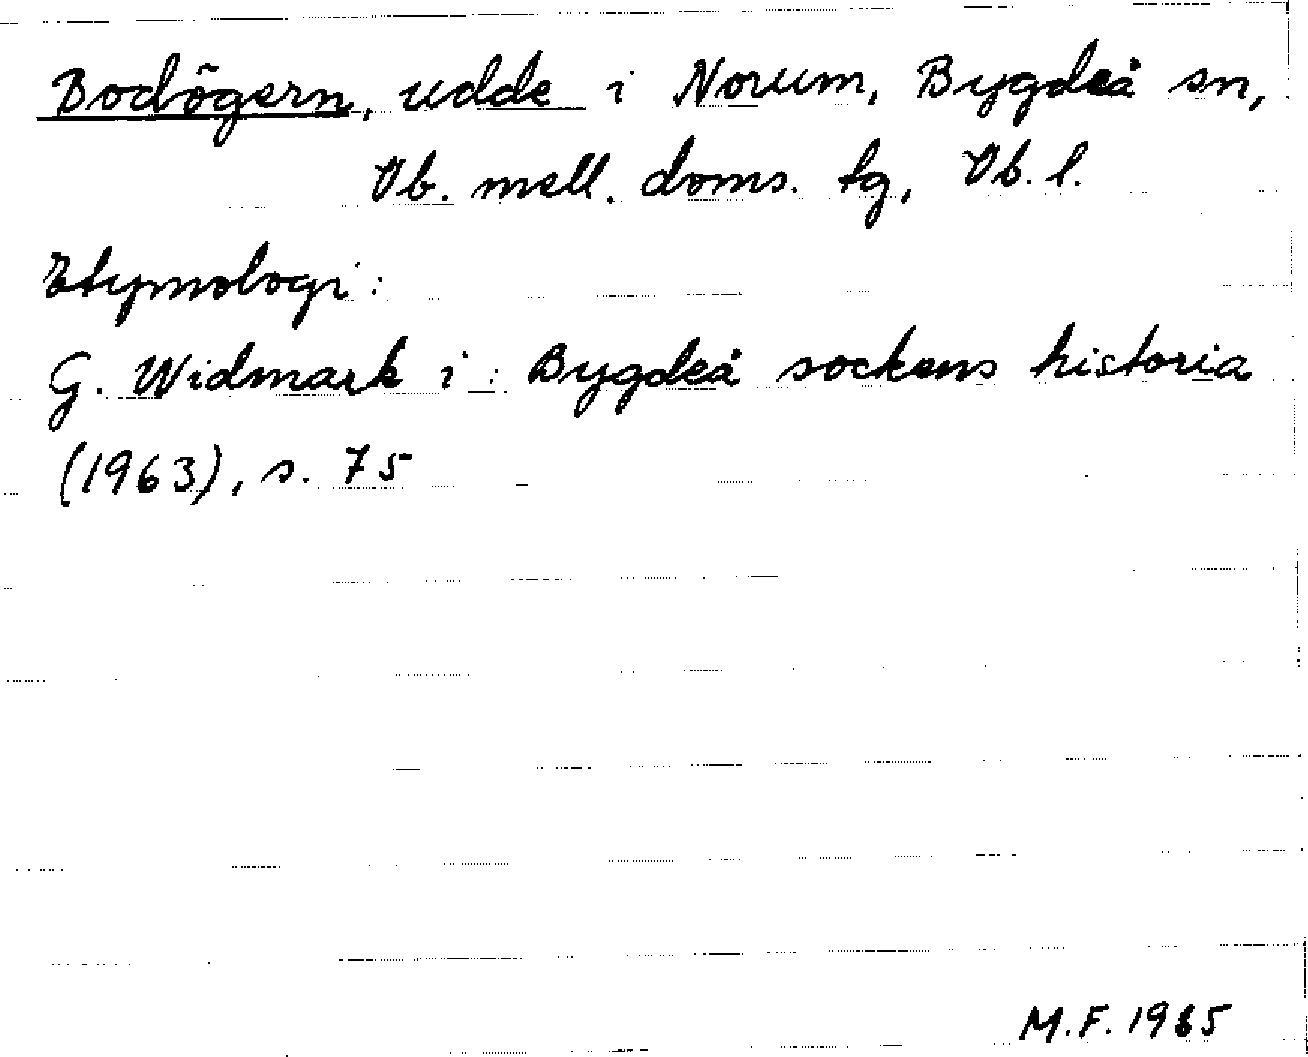 Bodögern, udde i Norum, Bygdeå sn,
Vb. mell. doms. tg, Vb. l.
Etymologi:
G. Widmark i: Bygdeå sockens historia
(1963), s. 75
M.F. 1985